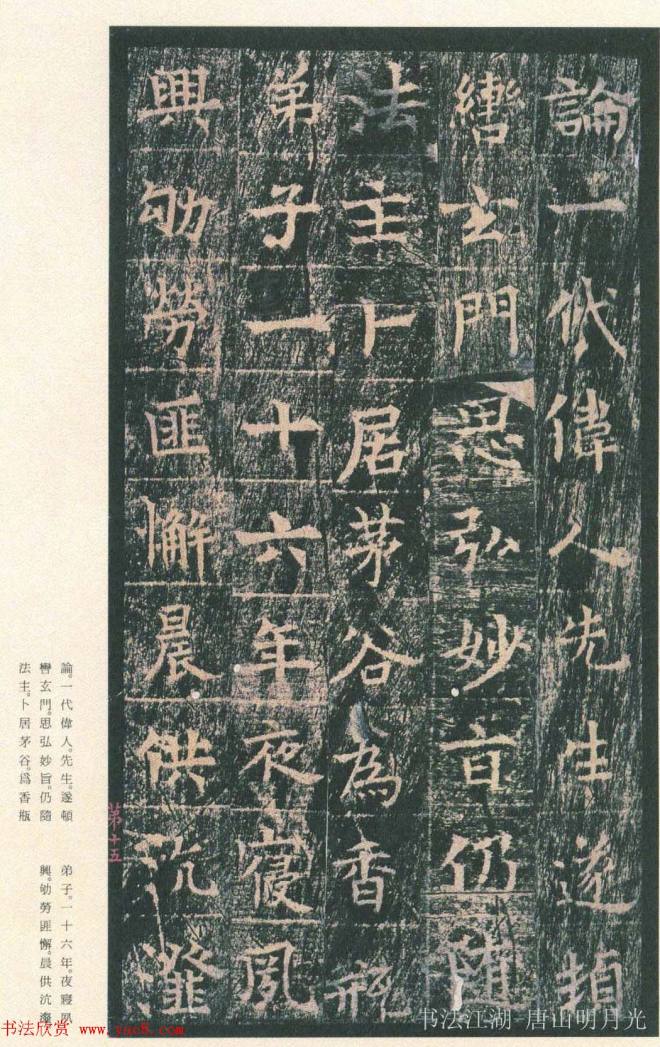 論一代偉人先生遂頓
轡玄門思弘妙旨仍隨
法主卜居茅谷為香瓶
弟子一十六年夜寢夙
興劬勞匪懈晨供沆瀣
論。一代偉人。先生。遂頓
轡玄門。思弘妙旨。仍隨
法主。卜居茅谷。爲香瓶
弟子。一十六年。夜寢夙
興。劬勞匪懈。晨供沆瀣
第十五
书法欣赏 www.yac8.com
书法江湖-唐山明月光